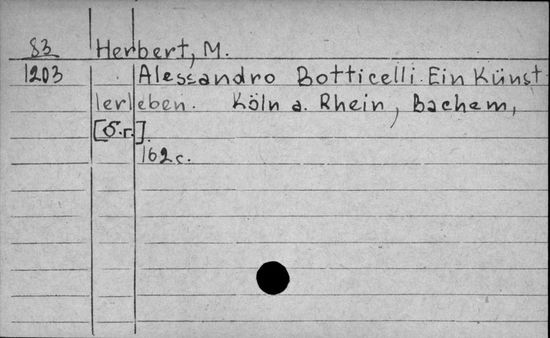 83 Herbert, M.
1203 Alessandro Botticelli. Ein Künst-
lerleben. Köln a. Rhein, Bachem,
[б.г.].
162 c.